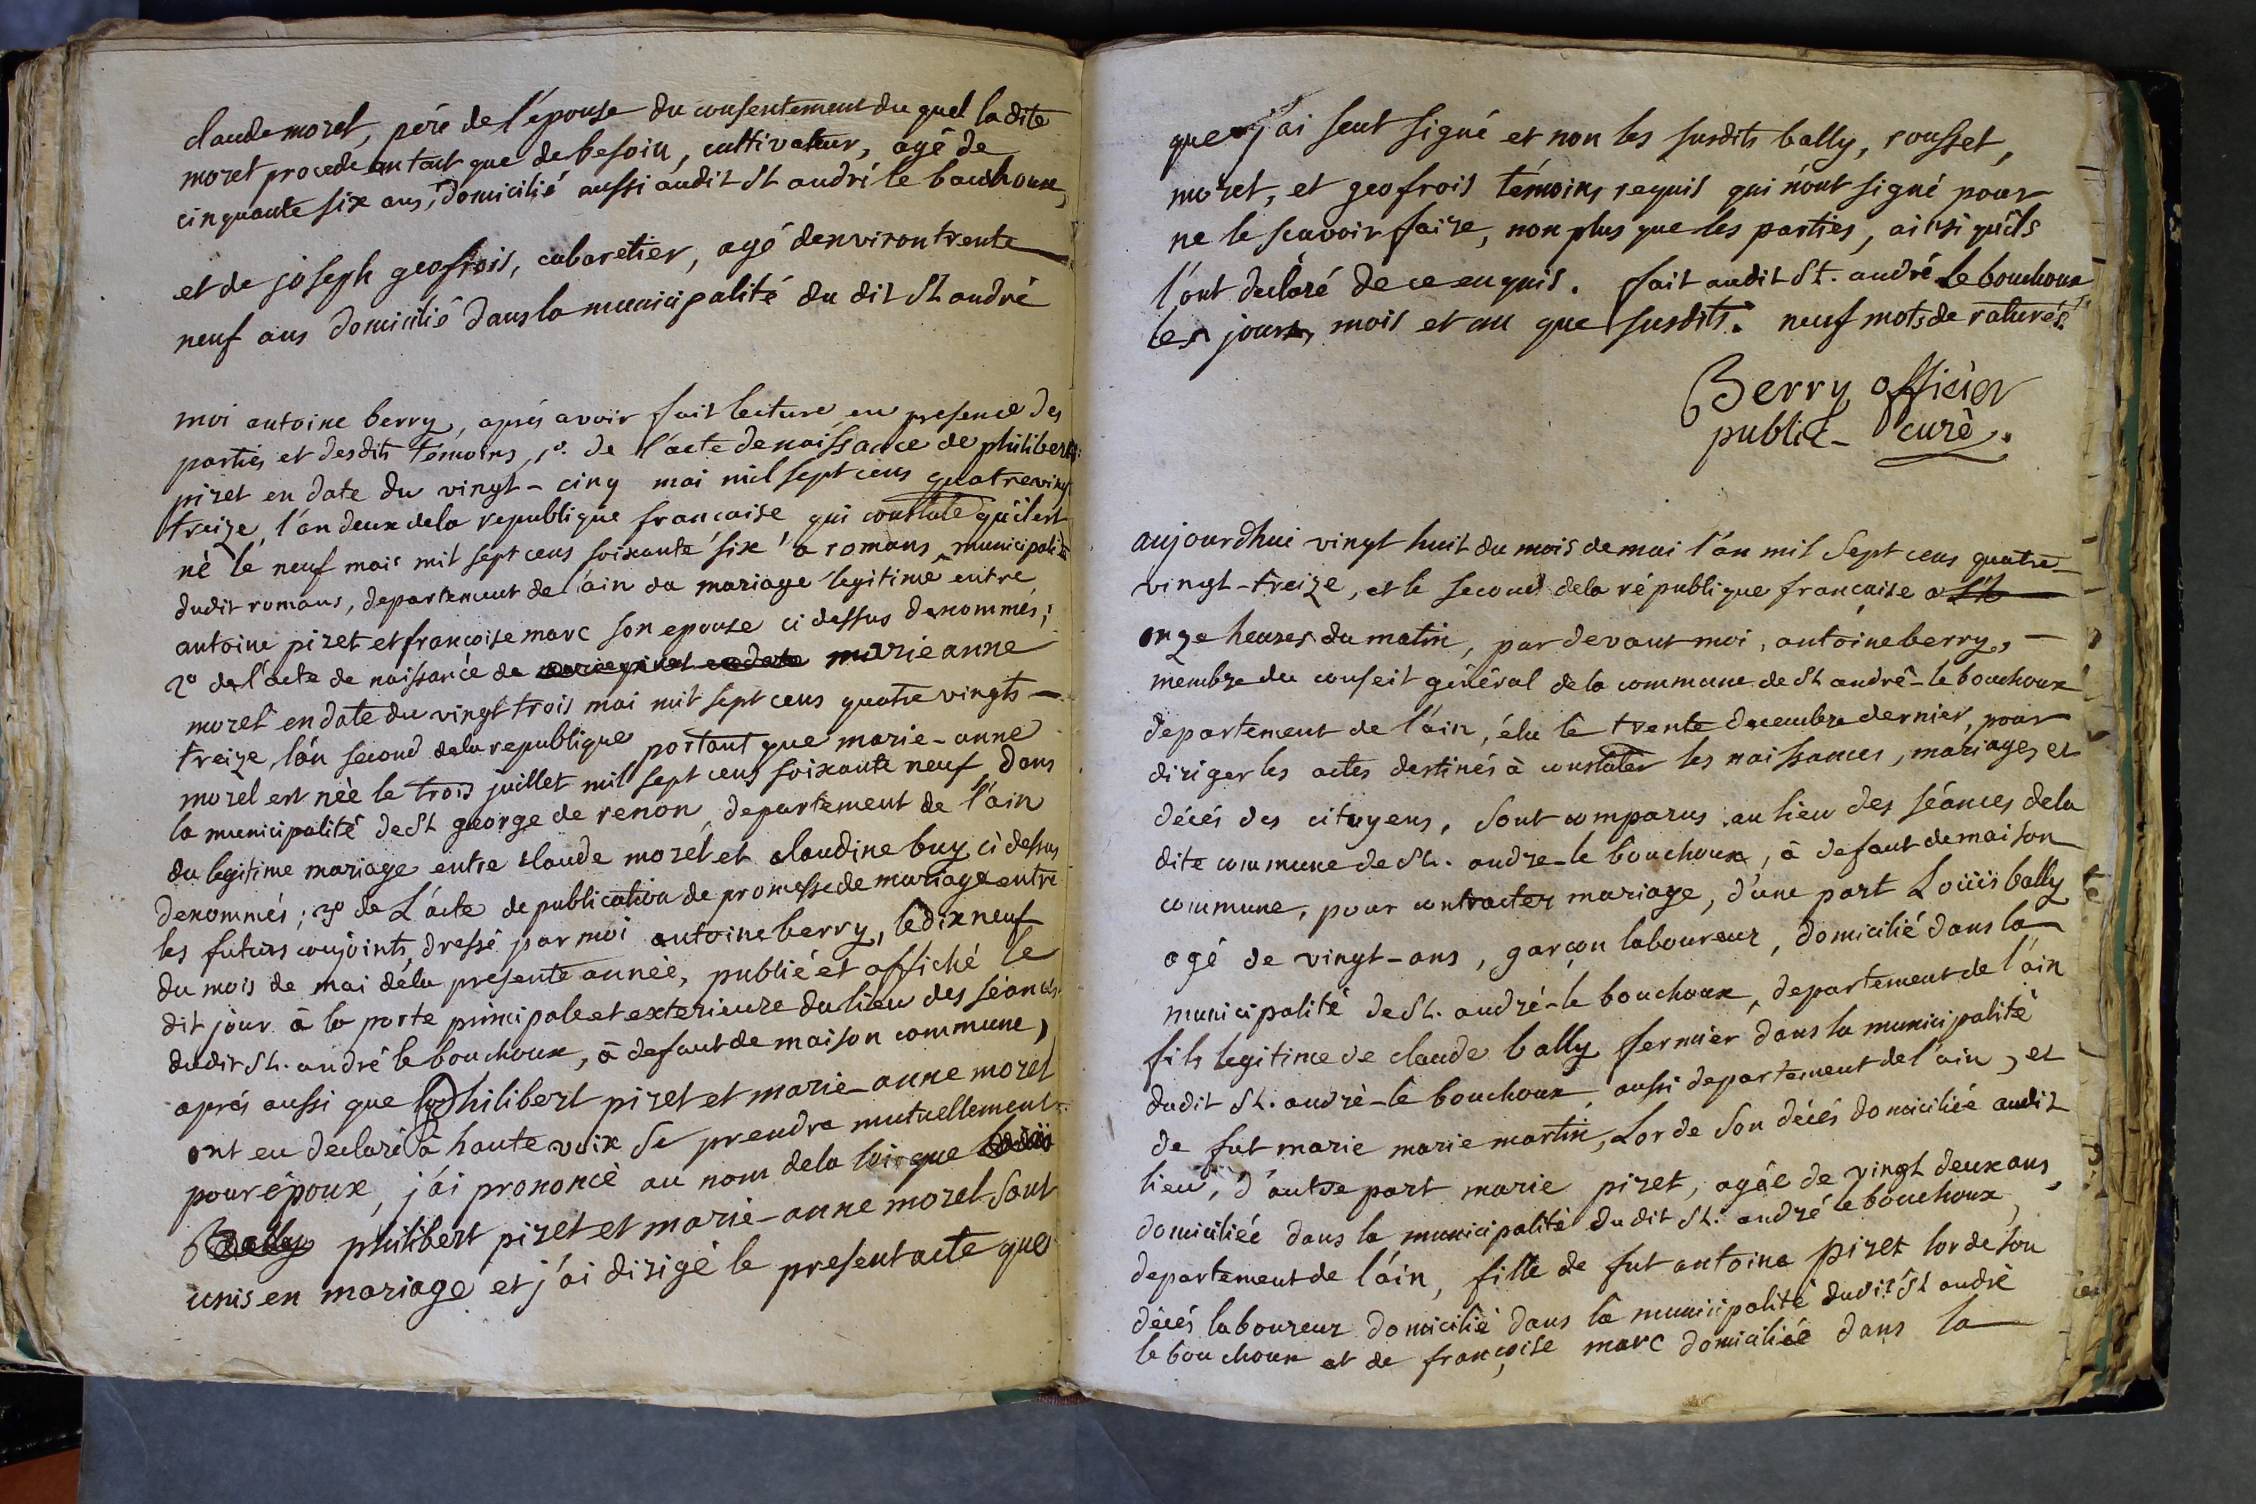 claude moret, pére de l'épouse du consentement du quel ladite
moret procede en tant que de besoin, cultivateur, agé de
cinquante six ans, domicilié aussi audit St andré le bouchoux,
et de joseph geofrois, cabaretier, agé denviron trente
neuf ans domicilié dans la municipalité du dit St andré
moi antoine berry, aprés avoir fait lecture en presence des
parties et desdits témoins, 1º. de l'acte de naissance de philibert
pizet en date du vingt-cinq mai mil sept cens quatrevingt
treize, l'an deux de la republique francaise qui constate qu'il est
né le neuf mai mil sept cens soixante six a romans, municipalité
dudit romans, departement de l'ain du mariage legitime entre
antoine pizet et francoise marc son epouse ci dessus denommés;
2º de l'acte de naissance de marie anne
moret en date du vingt trois mai mil sept cens quatre vingts
treize, l'an second dela republique portant que marie-anne
morel est née le trois juillet mil sept cens soixante neuf dans
la municipalité de St george de renon, departement de l'ain
du legitime mariage entre claude morel et claudine buy ci dessus
denommés; 3º de L'acte de publication de promesse de mariage entre
les futurs conjoints, dressé par moi antoine berry, le dix neuf
du mois de mai dela presente année, publié et affiché le
dit jour à la porte principale et exterieure du lieu des séances
dudit St. andré le bouchoux, à defaut de maison commune,
aprés aussi que philibert pizet et marie-anne morel
ont eu declaré à haute voix se prendre mutuellement
pour époux, j'ai prononcé au nom dela loi que
philibert pizet et marie-anne morel sont
unis en mariage et j'ai dirigé le present acte que
que j'ai seul signé et non les susdits bally, rousset,
moret, et geofrois témoins requis qui n'ont signé pour
ne le scavoir faire, non plus que les parties, ainsi qu'ils
l'ont declaré de ce enquis. fait audit St. andré le bouchoux
les jours, mois et an que susdits. neuf mots de raturés.
Berry officier
public - curé.
aujourdhui vingt huit du mois de mai l'an mil Sept cens quatre
vingt-treize, et le second dela république francaise a
onze heures du matin, par devant moi, antoine berry,
membre du conseil général de la commune de St andré-le bouchoux
departement de l'ain, élu le trente decembre dernier, pour
diriger les actes destinés à constater les naissances, mariages et
décés des citoyens, sont comparus au lieu des séances dela
dite commune de St. andre-le bouchoux, à defaut de maison
commune, pour contracter mariage, d'une part Loüis bally
agé de vingt-ans, garcon laboureur, domicilié dans la
municipalité de St. andré-le bouchoux, departement de l'ain
fils legitime de claude bally fermier dans la municipalité
dudit St. andrè-le bouchoux, aussi departement de l'ain, et
de fut marie marie martin, Lor de son décés domiciliée audit
lieu, d'autre part marie pizet, agée de vingt deux ans,
domiciliée dans la municipalité du dit St. andré le bouchoux,
departement de l'ain, fille de fut antoine pizet lor de son
décés laboureur domicilié dans la municipalité dudit St andré
le bouchoux et de françoise marc domiciliée dans la